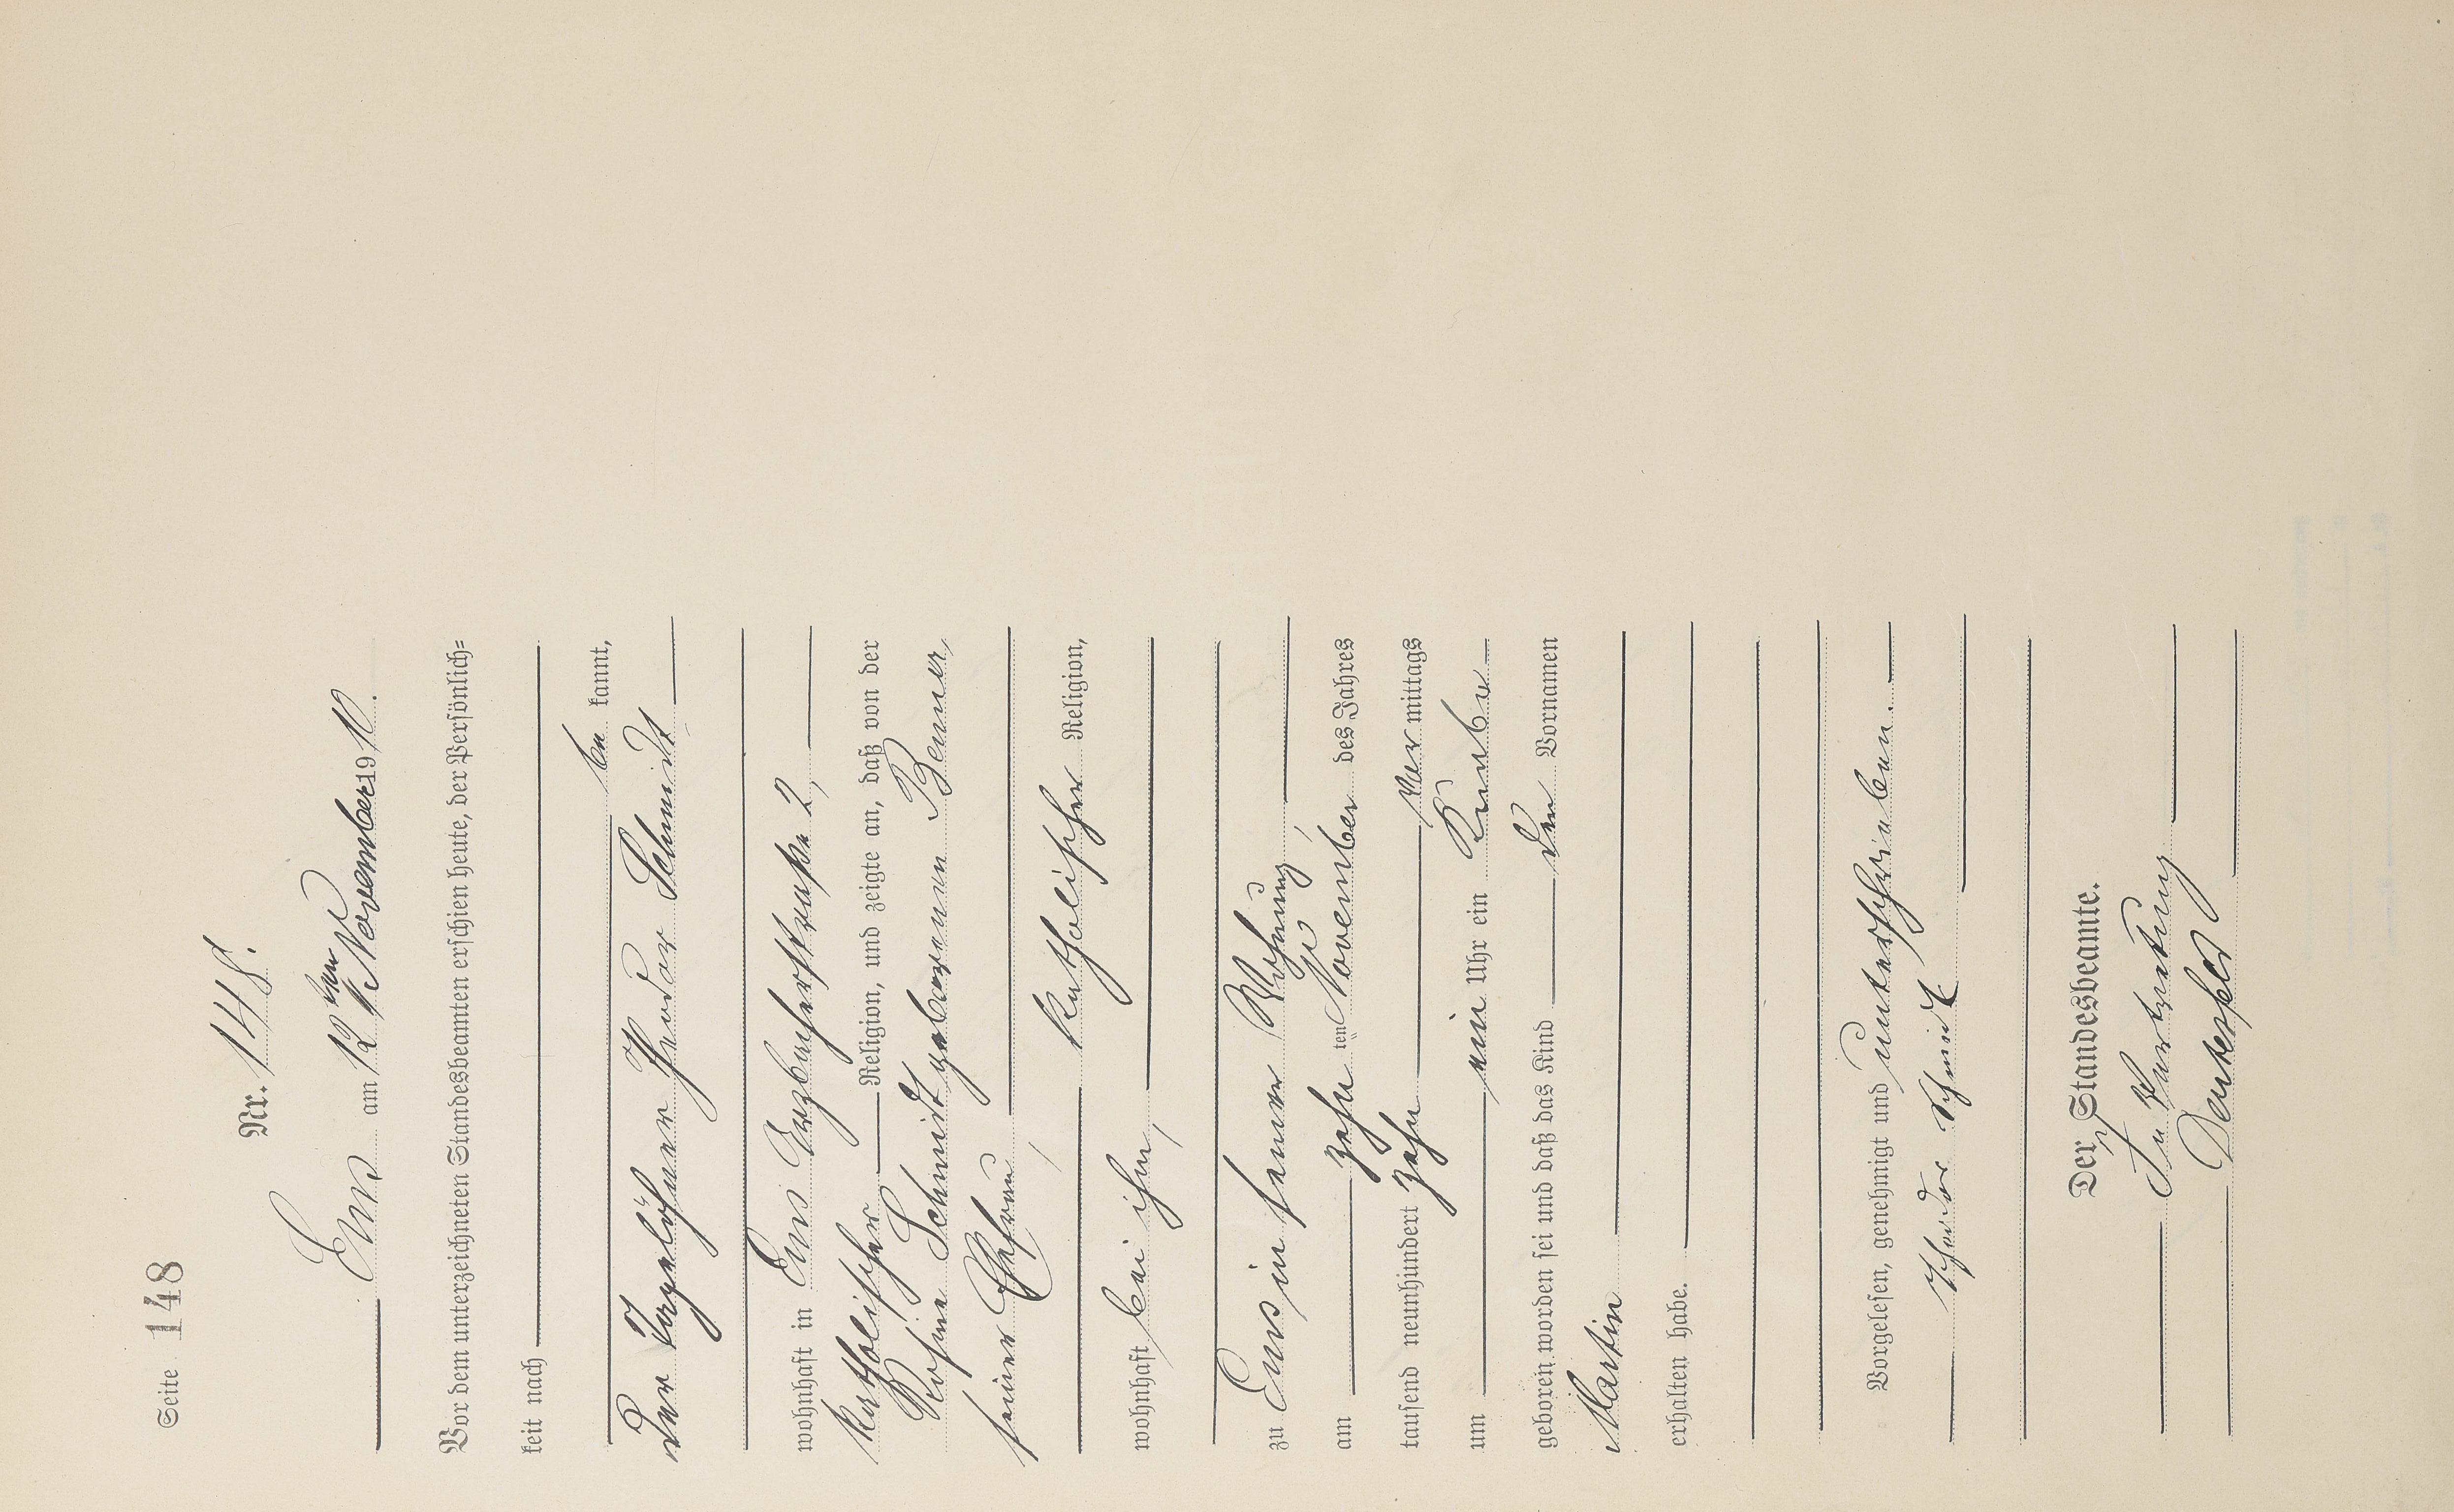 Seite 148
Nr. 148.
Ems am 12ten November 1910.
Vor dem unterzeichneten Standesbeamten erschien heute, der Persönlich-
keit nach
be kannt,
der Tagelöhner Theodor Schmidt
wohnhaft in Ems Arzbacherstraße 2,
katholischer Religion, und zeigte an, daß von der
Rosine Schmidt geborenen Benner,
seiner Ehefrau,
katholischer Religion,
wohnhaft bei ihm,
zu Ems in seiner Wohnung,
am zehn ten November des Jahres
tausend neunhundert zehn vor mittags
um ein Uhr ein Knabe
geboren worden sei und daß das Kind den Vornamen
Martin
erhalten habe.
Vorgelesen, genehmigt und unterschrieben.
Theodor Schmidt
Der Standesbeamte.
In Vertretung